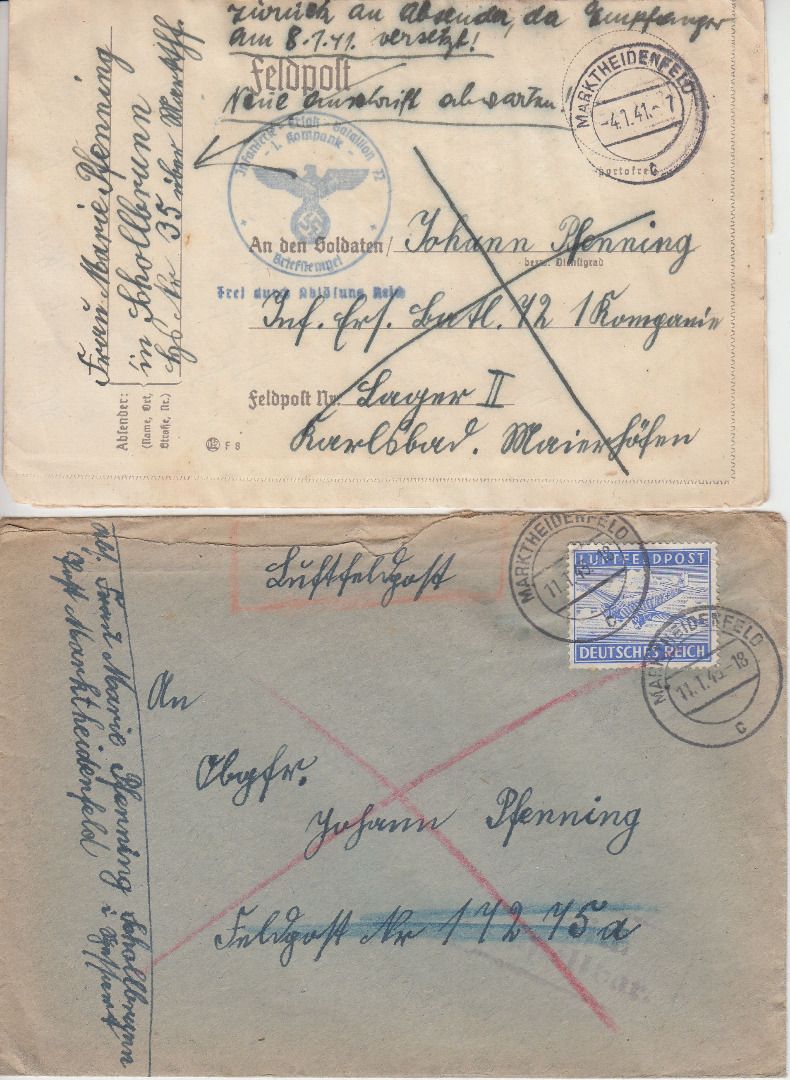 Zurück an Absender, da Empfänger
am 8.1.41. versetzt!
Feldpost
Neue Anschrift abwarten!
MARKTHEIDENFELD
-4.1.41.-7
c
Portofrei
Infanterie-Ersatz-Bataillon 72
- 1. Kompanie -
Briefstempel
Frei durch Ablösung Reich
An den Soldaten Johann Pfenning
bezw. Dienstgrad
Inf. Ers. Batl. 72 1 Kompanie
Feldpost Nr. Lager II
Karlsbad. Maierhöfen
F 8
Absender:
(Name, Ort,
Straße, Nr.)
Frau Marie Pfenning
in Schollbrunn
Hs Nr 35 über Markthf.
Luftfeldpost
MARKTHEIDENFELD
c
LUFTFELDPOST
DEUTSCHES REICH
MARKTHEIDENFELD
11.1.45-18
c
An
Obgfr.
Johann Pfenning
Feldpost Nr 17275a
Frau Marie Pfenning Schollbrunn
Post Marktheidenfeld